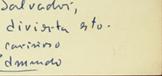 Salvador,
divierta esto.
cariñoso
Edmundo